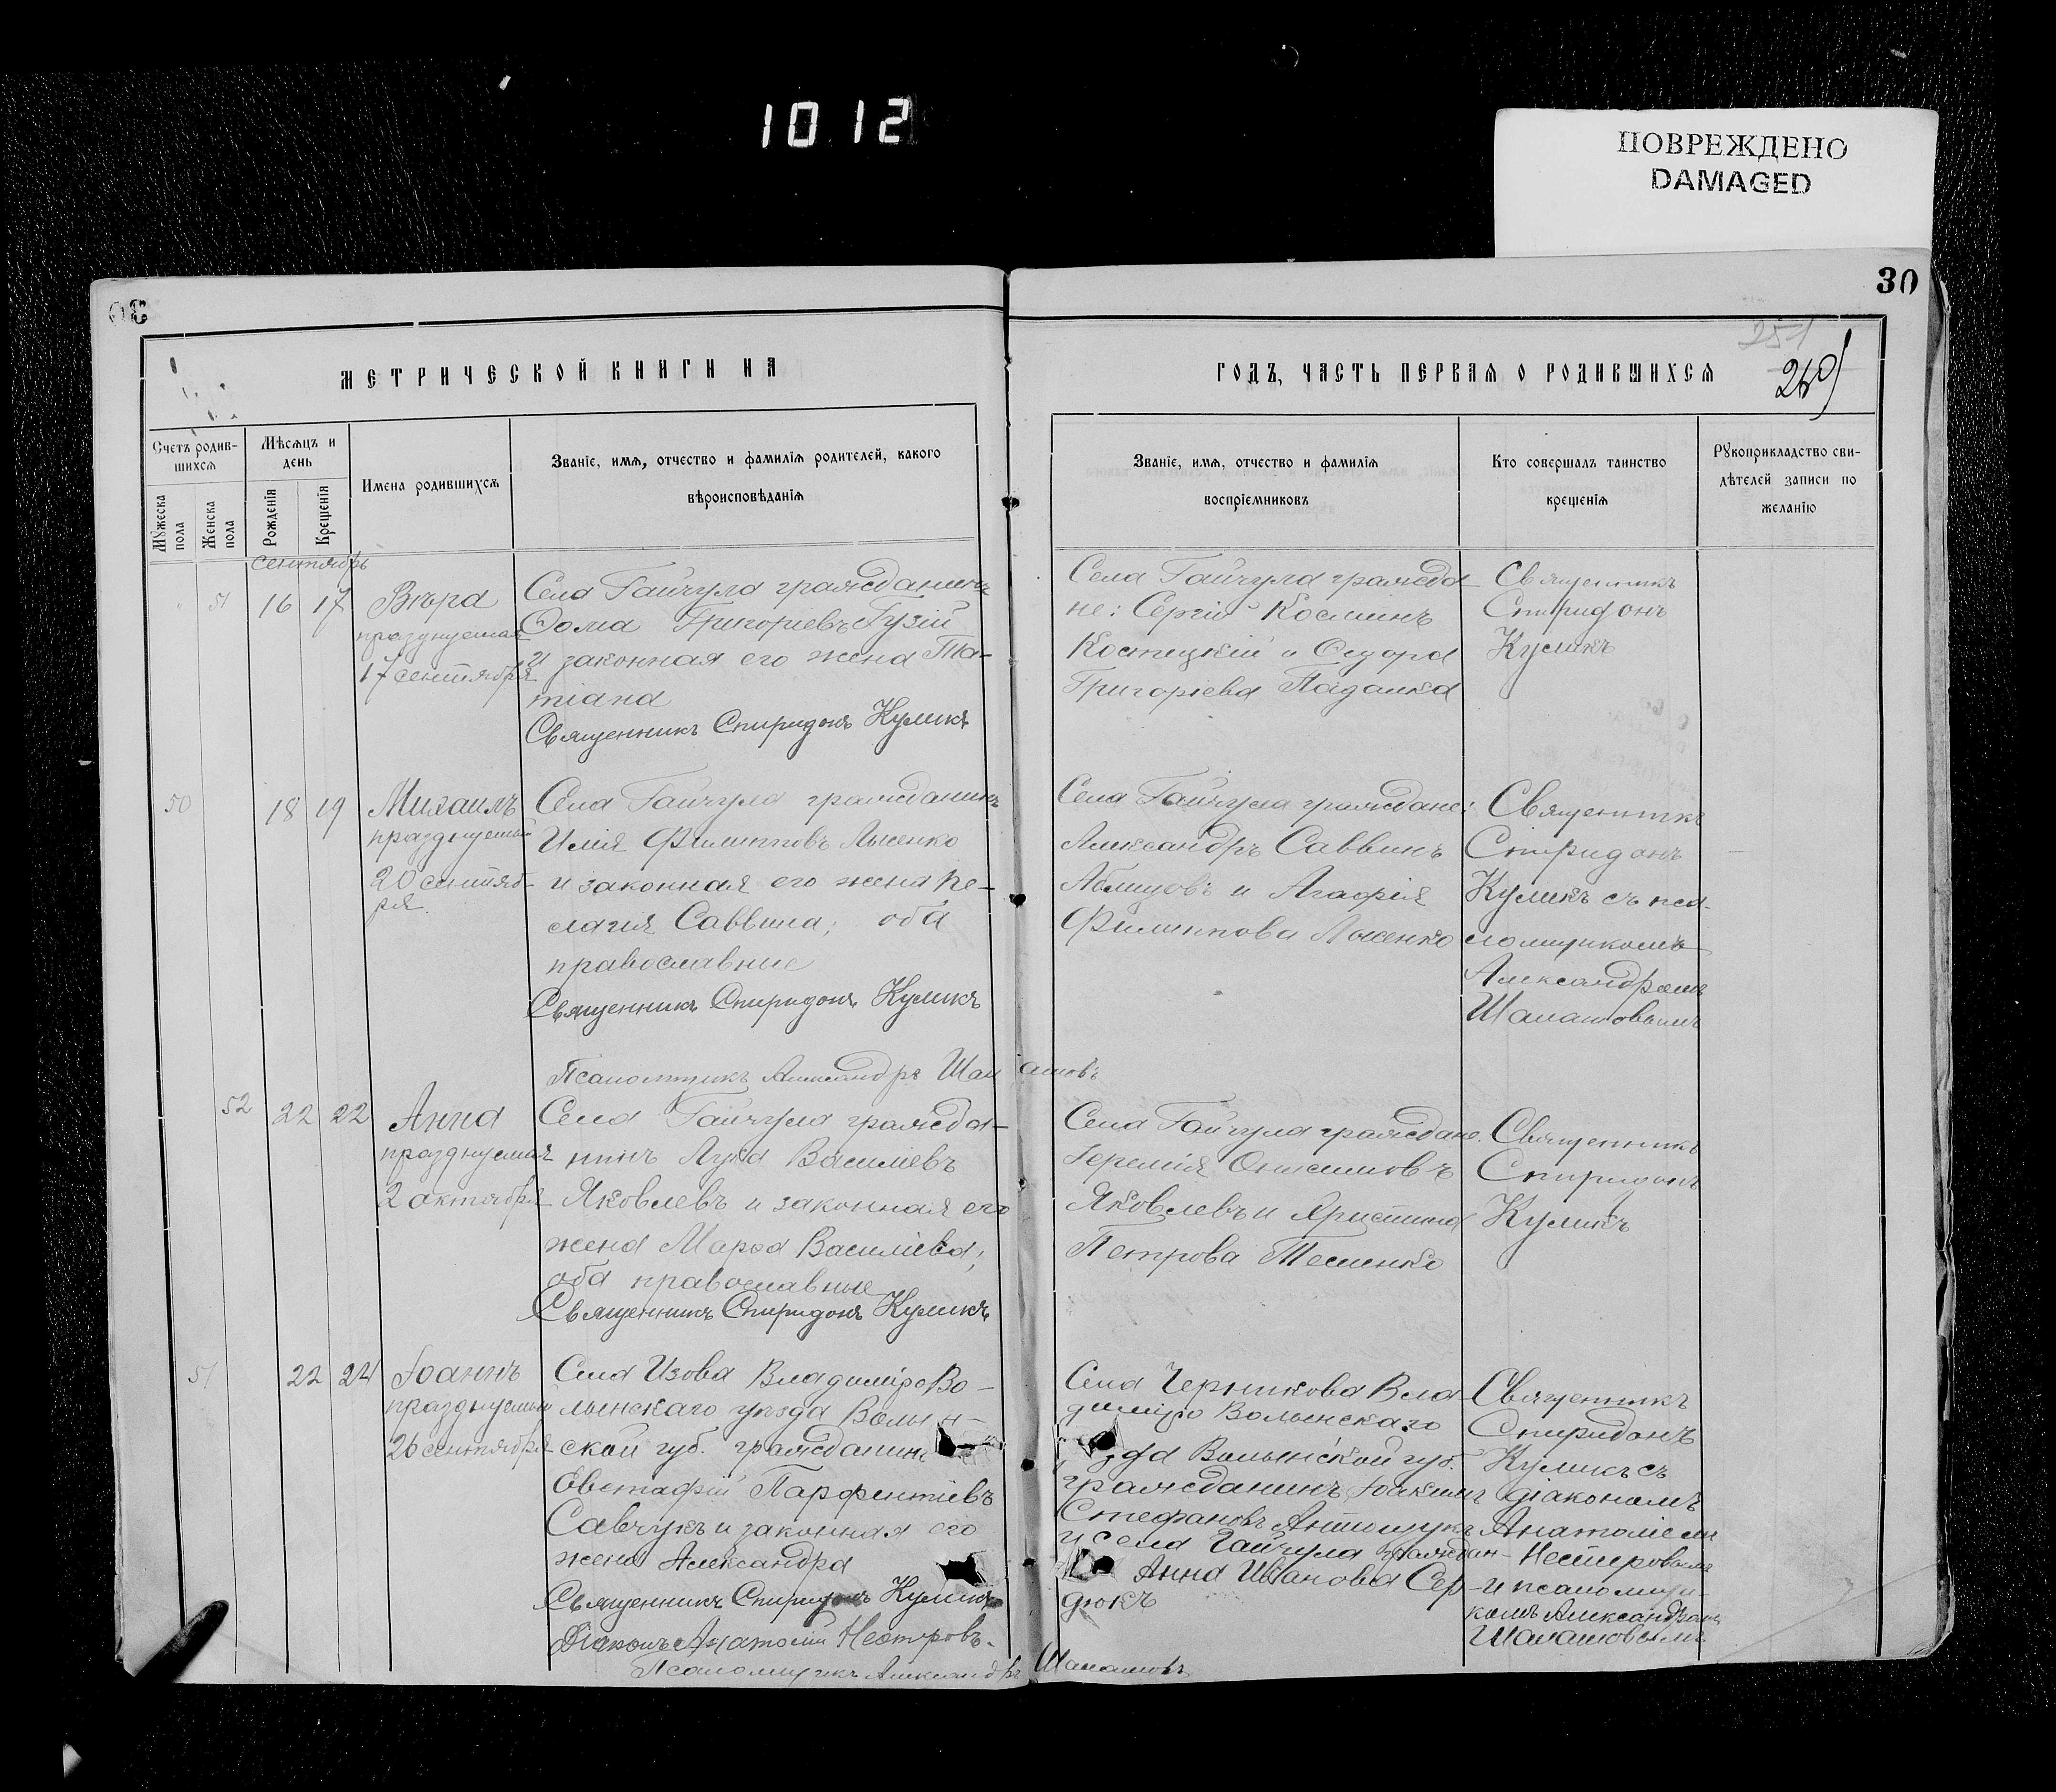 1012
ПОВРЕЖДЕНО
DAMAGED
30
251
260
МЕТРИЧЕСКОЙ КНИГИ НА
ГОДЪ, ЧАСТЬ ПЕРВАЯ О РОДИВШИХСЯ
Счетъ родив-
шихся
Мужеска пола
Женска пола
Мѣсяцъ и
день
Рожденія
Крещенія
Имена родившихся
Званіе, имя, отчество и фамилія родителей, какого
вѣроисповѣданія
Званіе, имя, отчество и фамилія
воспріемниковъ
Кто совершалъ таинство
крещенія
Рукоприкладство сви-
дѣтелей записи по
желанію
сентябрь
51
16 17
Вѣра
празднуемая
17 сентября
Села Гайчула гражданинъ
Ѳома Григоріевъ Гузій
и законная его жена Та-
тіана
Священникъ Спиридонъ Куликъ
Села Гайчула гражда-
не: Сергій Косминъ
Костецкій и Ѳедора
Григоріева
Священникъ
Спиридонъ
Куликъ
50
18 19
Михаилъ
празднуемый
20 сентяб-
ря.
Села Гайчула гражданинъ
Илія Филипповъ Лысенко
и законная его жена Пе-
лагія Саввина; оба
православные
Священникъ Спиридонъ Куликъ
Псаломщикъ Александръ Шалашовъ
Села Гайчула граждане:
Александръ Саввинъ
и Агафія
Филиппова Лысенко
Священникъ
Спиридонъ
Куликъ съ пса-
ломщикомъ
Александромъ
Шалашовымъ
52
22 22
Анна
празднуемая
2 октября
Села Гайчула гражда-
нинъ Лука Василіевъ
Яковлевъ и законная его
жена Марѳа Василіева;
оба православные
Священникъ Спиридонъ Куликъ
Села Гайчула граждане:
Іеремія Онисимовъ
Яковлевъ и Христина
Петрова Тесленко
Священникъ
Спиридонъ
Куликъ
51
22 24
Іоаннъ
празднуемый
26 сентября
Села Изова Владиміро Во-
лынскаго уѣзда Волын-
ской губ. гражданинъ
Евстафій Парфентіевъ
Савчукъ и законная его
жена Александра
Священникъ Спиридонъ Куликъ
Діаконъ Анатолій Нестеровъ.
Псаломщикъ Александръ Шалашовъ
Села Черникова Вла-
диміро Волынскаго
зда Волынской губ.
гражданинъ Іоакимъ
Стефановъ Антощукъ
и села Гайчула граждан-
Анна Иванова Сер-
дюкъ
Священникъ
Спиридонъ
Куликъ съ
діакономъ
Анатоліемъ
Нестеровымъ
и псаломщи-
комъ Александромъ
Шалашовымъ